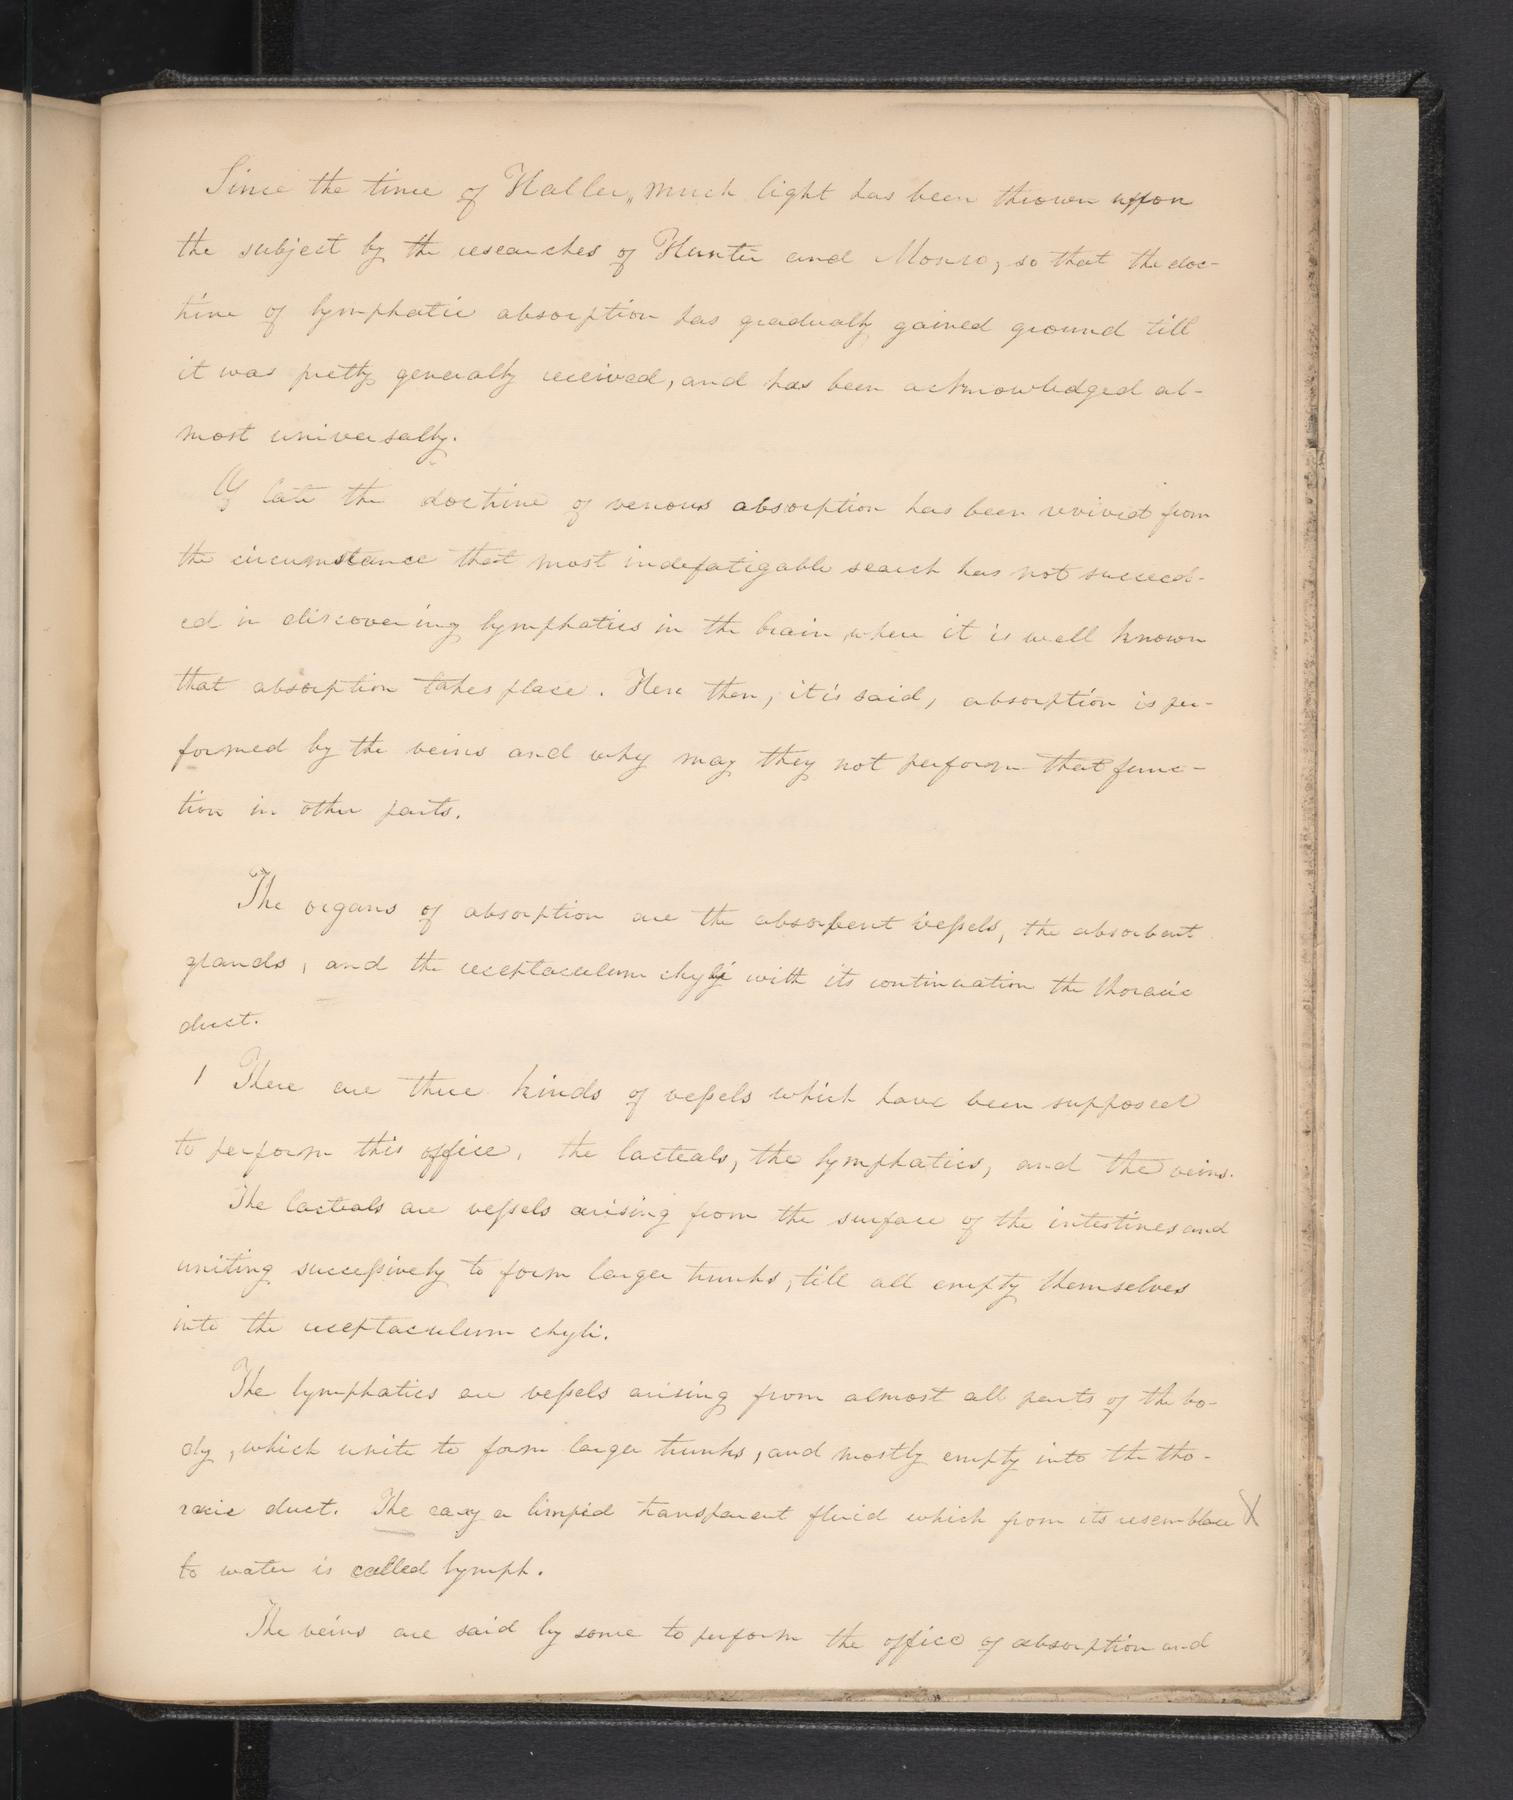 Since the time of Haller, much light has been thrown upon
the subject by the researches of Hunter and Monro, so that the doc-
trine of lymphatic absorption has gradually gained ground till
it was pretty generally received, and has been acknowledged al-
most universally.
Of late the doctrine of venous absorption has been revived from
the circumstance that most indefatigable search has not succeed-
ed in discovering lymphatics in the brain, where it is well known
that absorption takes place. Here then, it is said, absorption is per-
formed by the veins and why may they not perform that func-
tion in other parts.
The organs of absorption are the absorbent vessels, the absorbent
glands, and the receptaculum chyli with its continuation the thoracic
duct.
1 There are three kinds of vessels which have been supposed
to perform this office, the lacteals, the lymphatics, and the veins.
The lacteals are vessels arising from the surface of the intestines and
uniting successively to form larger trunks, till all empty themselves
into the receptaculum chyli.
The lymphatics are vessels arising from almost all parts of the bo-
dy, which unite to form larger trunks, and mostly empty into the tho-
racic duct. The cary a limpid transparent fluid which from its resemblace X
to water is called lymph.
The veins are said by some to perform the office of absorption and